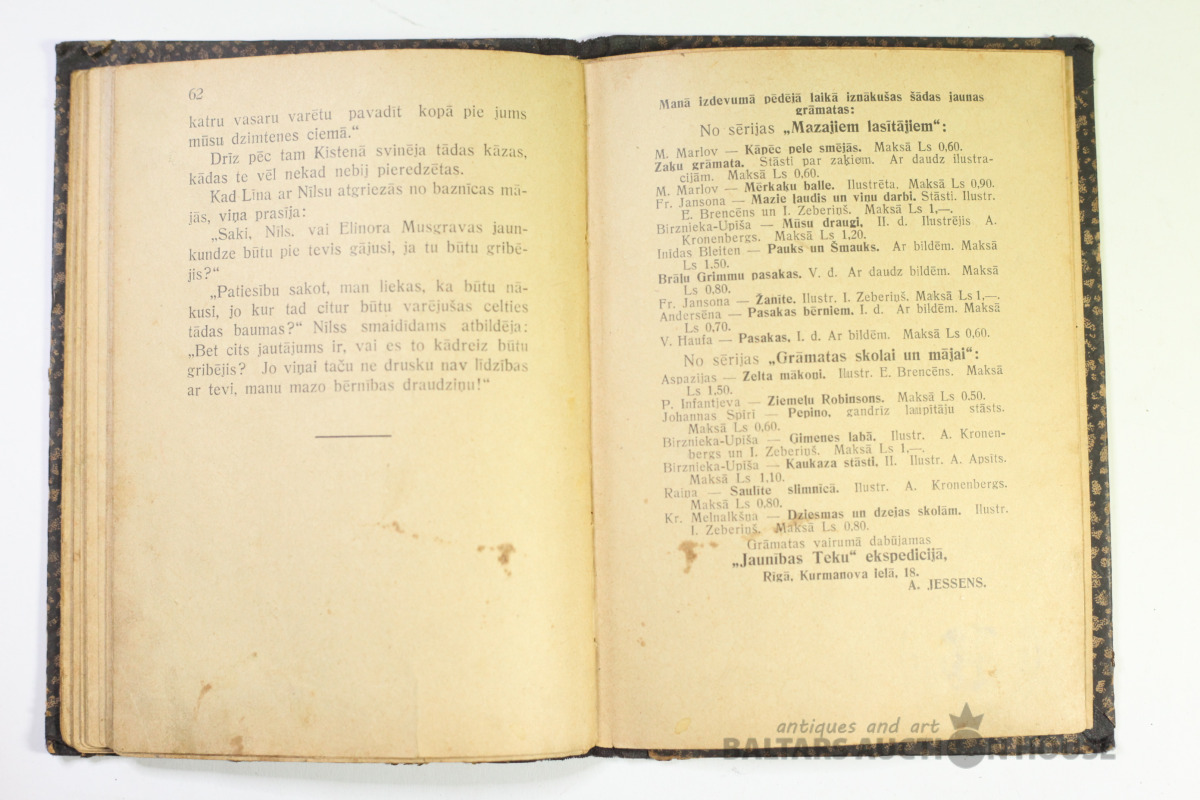 62
katru vasaru varētu pavadīt kopā pie jums
mūsu dzimtenes ciemā.“
Drīz pēc tam Kistenā svinēja tādas kāzas,
kādas te vēl nekad nebij pieredzētas.
Kad Līna ar Nīlsu atgriezās no baznīcas mā-
jās, viņa prasīja:
„Saki, Nils, vai Elinora Musgravas jaun-
kundze būtu pie tevis gājusi, ja tu būtu gribē-
jis?“
„Patiesību sakot, man liekas, ka būtu nā-
kusi, jo kur tad citur būtu varējušas celties
tādas baumas?“ Nilss smaidīdams atbildēja:
„Bet cits jautājums ir, vai es to kādreiz būtu
gribējis? Jo viņai taču ne drusku nav līdzības
ar tevi, manu mazo bērnības draudziņu!“
Manā izdevumā pēdējā laikā iznākušas šādas jaunas
grāmatas:
No sērijas „Mazajiem lasītājiem“:
M. Marlov — Kāpēc pele smējās. Maksā Ls 0,60.
Zaķu grāmata. Stāsti par zaķiem. Ar daudz ilustra-
cijām. Maksā Ls 0.60.
M. Marlov — Mērkaķu balle. Ilustrēta. Maksā Ls 0,90.
Fr. Jansona — Mazie ļaudis un viņu darbi. Stāsti. Ilustr.
E. Brencēns un I. Zeberiņš. Maksā Ls 1,—.
Birznieka-Upīša — Mūsu draugi, II. d. Ilustrējis A.
Kronenbergs. Maksā Ls 1,20.
Inidas Bleiten — Pauks un Šmauks. Ar bildēm. Maksā
Ls 1.50.
Brāļu Grimmu pasakas. V. d. Ar daudz bildēm. Maksā
Ls 0,80.
Fr. Jansona — Žanīte. Ilustr. I. Zeberiņš. Maksā Ls 1,—.
Andersēna — Pasakas bērniem. I. d. Ar bildēm. Maksā
Ls 0,70.
V. Haufa — Pasakas, I. d. Ar bildēm. Maksā Ls 0,60.
No sērijas „Grāmatas skolai un mājai“:
Aspazijas — Zelta mākoņi. Ilustr. E. Brencēns. Maksā
Ls 1.50.
P. Infantjeva — Ziemeļu Robinsons. Maksā Ls 0.50.
Johannas Spiri — Pepino, gandrīz laupītāju stāsts.
Maksā Ls 0,60.
Birznieka-Upīša — Ģimenes labā. Ilustr. A. Kronen-
bergs un I. Zeberiņš. Maksā Ls 1,—.
Birznieka-Upīša — Kaukaza stāsti, II. Ilustr. A. Apsīts.
Maksā Ls 1,10.
Raiņa — Saulīte slimnīcā. Ilustr. A. Kronenbergs.
Maksā Ls 0.80.
Kr. Melnalkšņa — Dziesmas un dzejas skolām. Ilustr.
I. Zeberiņš. Maksā Ls 0.80.
Grāmatas vairumā dabūjamas
„Jaunības Teku“ ekspedicijā,
Rīgā, Kurmanova ielā, 18.
A. JESSENS.
antiques and art
BALTARS AUCTION HOUSE